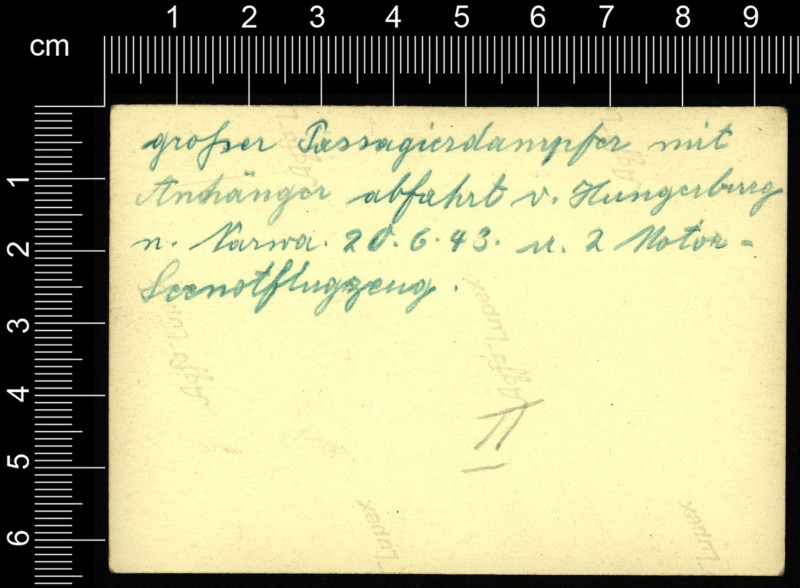 1 2 3 4 5 6 7 8 9
cm
großer Passagierdampfer mit
Anhänger abfahrt v. Hungerburg
n. Narwa. 20.6.43. u. 2 Motor-
Seenotflugzeug.
Agfa-Lupex
Agfa-Lupex
II
-Lupex
-Lupex
1
2
3
4
5
6